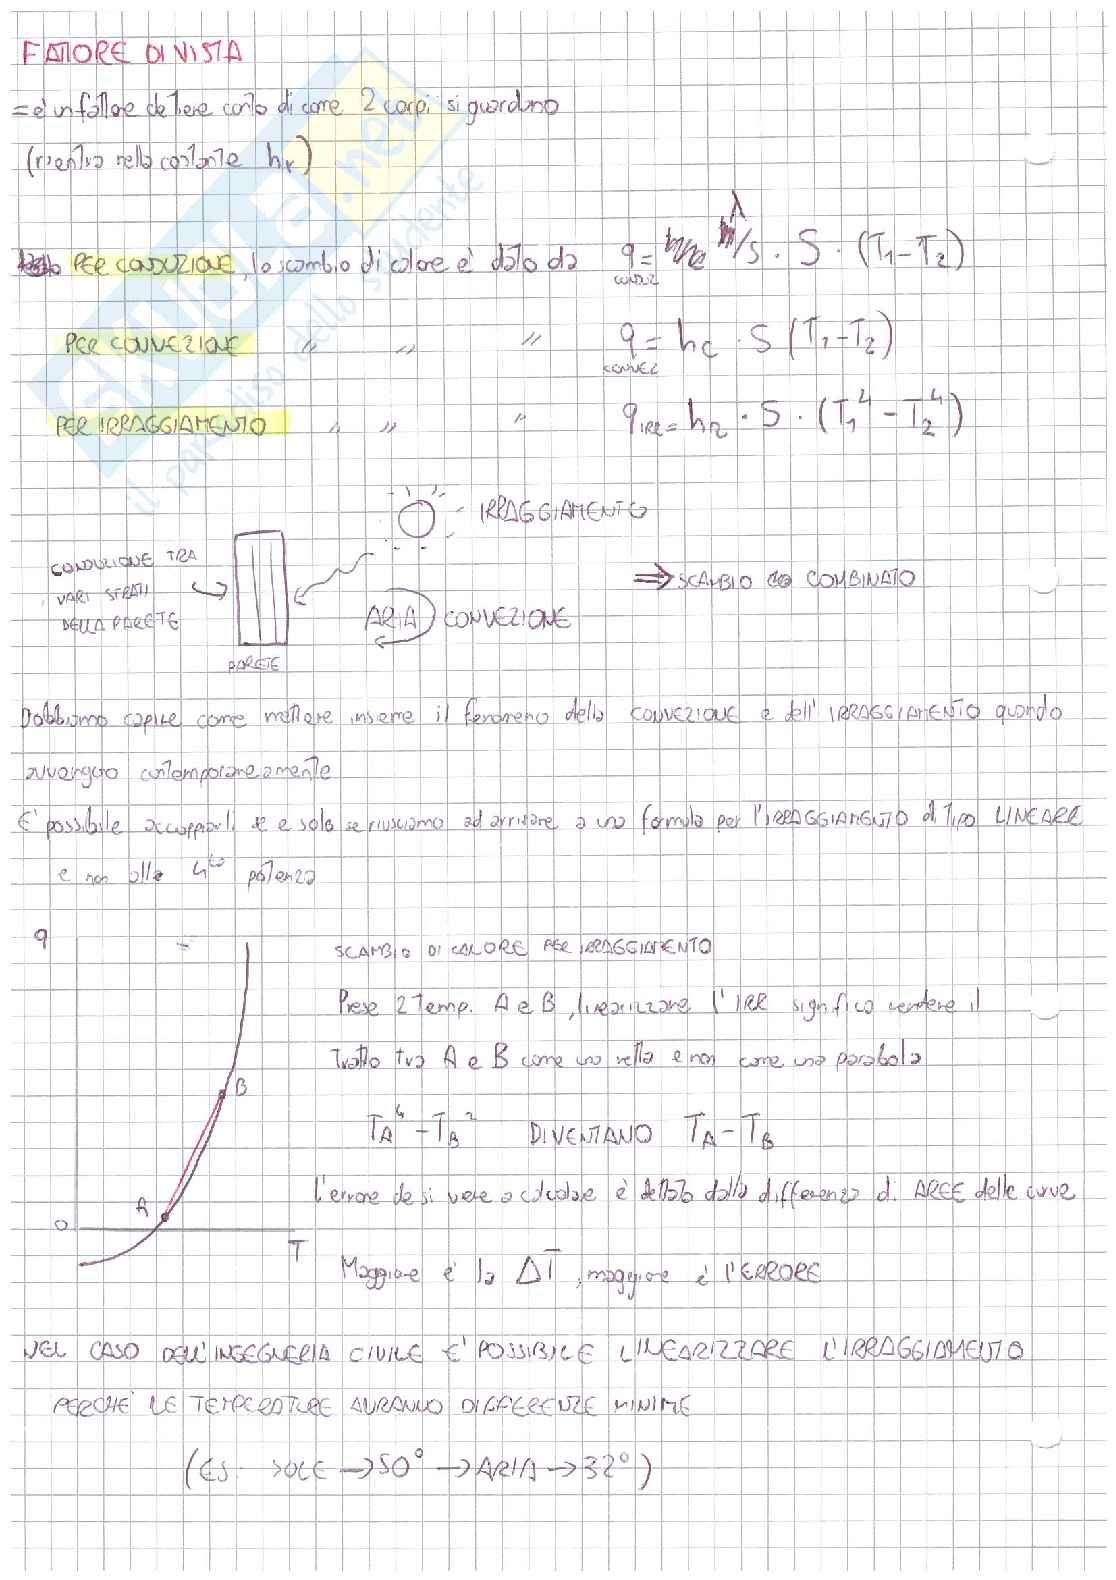 FATTORE DI VISTA
= è un fattore che tiene conto di come 2 corpi si guardano
(rientra nella costante hr)
PER CONDUZIONE, lo scambio di calore è dato da q CONDUZ = λ/s · S · (T1 - T2)
PER CONVEZIONE " " " q CONVEZ = hc · S (T1 - T2)
PER IRRAGGIAMENTO " " " qIRR = hr · S · (T1^4 - T2^4)
IRRAGGIAMENTO
CONDUZIONE TRA
VARI STRATI
DELLA PARETE
⇒ SCAMBIO COMBINATO
ARIA CONVEZIONE
PARETE
Dobbiamo capire come mettere insieme il fenomeno della CONVEZIONE e dell'IRRAGGIAMENTO quando
avvengono contemporaneamente
E' possibile accoppiarli se e solo se riusciamo ad arrivare a una formula per l'IRRAGGIAMENTO di TIPO LINEARE
e non alla 4ta potenza
q
SCAMBIO DI CALORE PER IRRAGGIAMENTO
Prese 2 Temp. A e B, linearizzare l'IRR significa rendere il
Tratto tra A e B come una retta e non come una parabola
B
TA^4 - TB^2 DIVENTANO TA - TB
A
l'errore che si viene a calcolare è dettato dalla differenza di AREE delle curve
O
T
Maggiore è la ΔT, maggiore è l'ERRORE
NEL CASO DELL'INGEGNERIA CIVILE E' POSSIBILE LINEARIZZARE L'IRRAGGIAMENTO
PERCHE' LE TEMPERATURE AVRANNO DIFFERENZE MINIME
(ES: SOLE → 50° → ARIA → 32°)
skuola.net
il paradiso dello studente